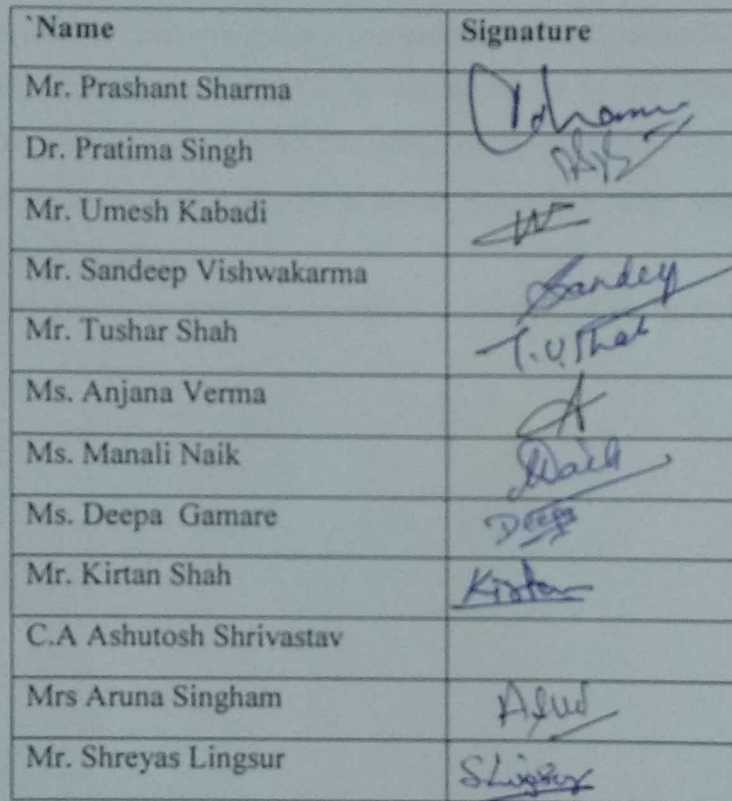 `Name Signature
Mr. Prashant Sharma
Dr. Pratima Singh
Mr. Umesh Kabadi
Mr. Sandeep Vishwakarma Sandeep
Mr. Tushar Shah T.U.Shah
Ms. Anjana Verma A
Ms. Manali Naik
Ms. Deepa Gamare Deepa
Mr. Kirtan Shah Kirtan
C.A Ashutosh Shrivastav
Mrs Aruna Singham
Mr. Shreyas Lingsur